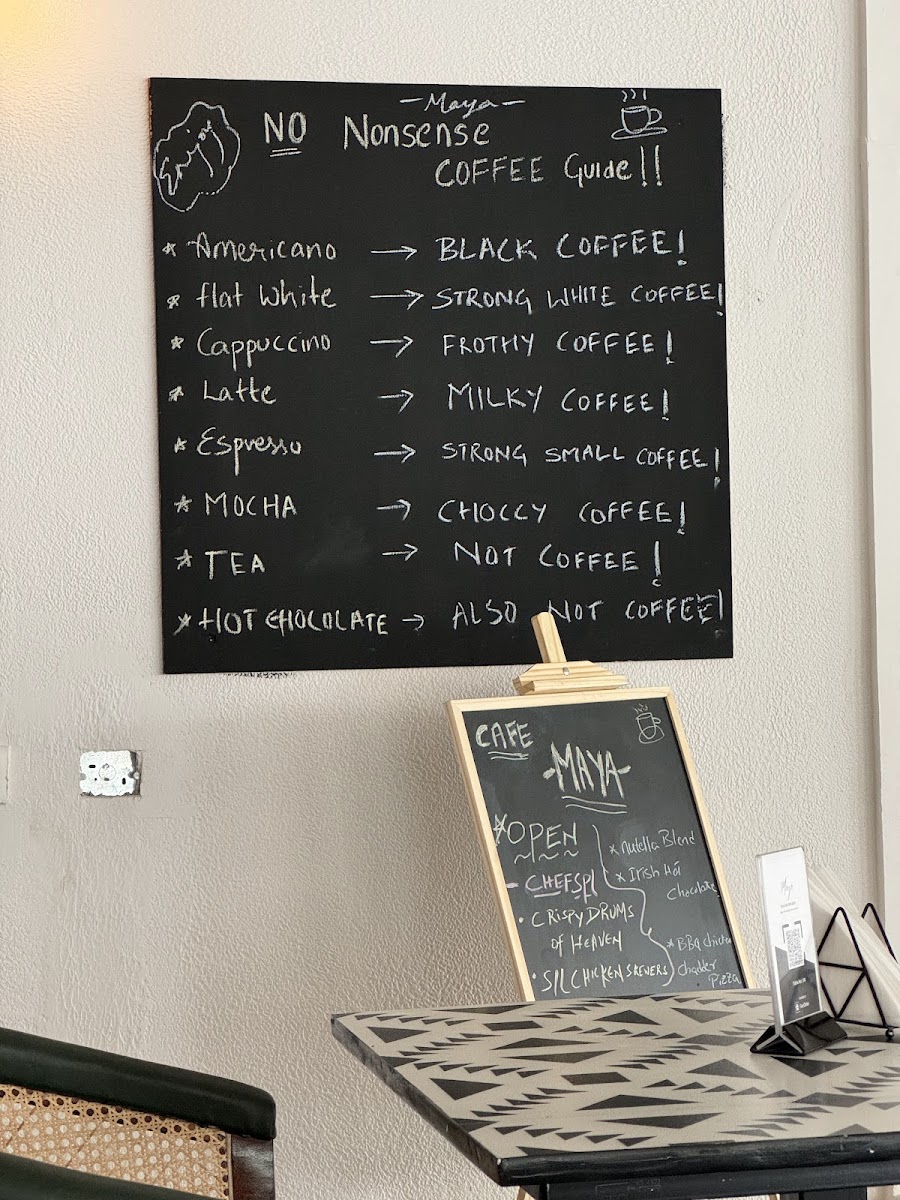 Enjoy
-Maya-
NO Nonsense
COFFEE Guide!!
* Americano → BLACK COFFEE!
* flat White → STRONG WHITE COFFEE!
* Cappuccino → FROTHY COFFEE!
* Latte → MILKY COFFEE!
* Espresso → STRONG SMALL COFFEE!
* MOCHA → CHOCCY COFFEE!
* TEA → NOT COFFEE!
* HOT CHOCOLATE → ALSO NOT COFFEE!
CAFE
-MAYA-
*OPEN
- CHEFSPL
• CRISPY DRUMS
OF HEAVEN
• S/L CHICKEN SKEWERS
* Nutella Blend
* Irish Hot
Chocolate
* BBQ chicken
Chadder
Pizza
Maya